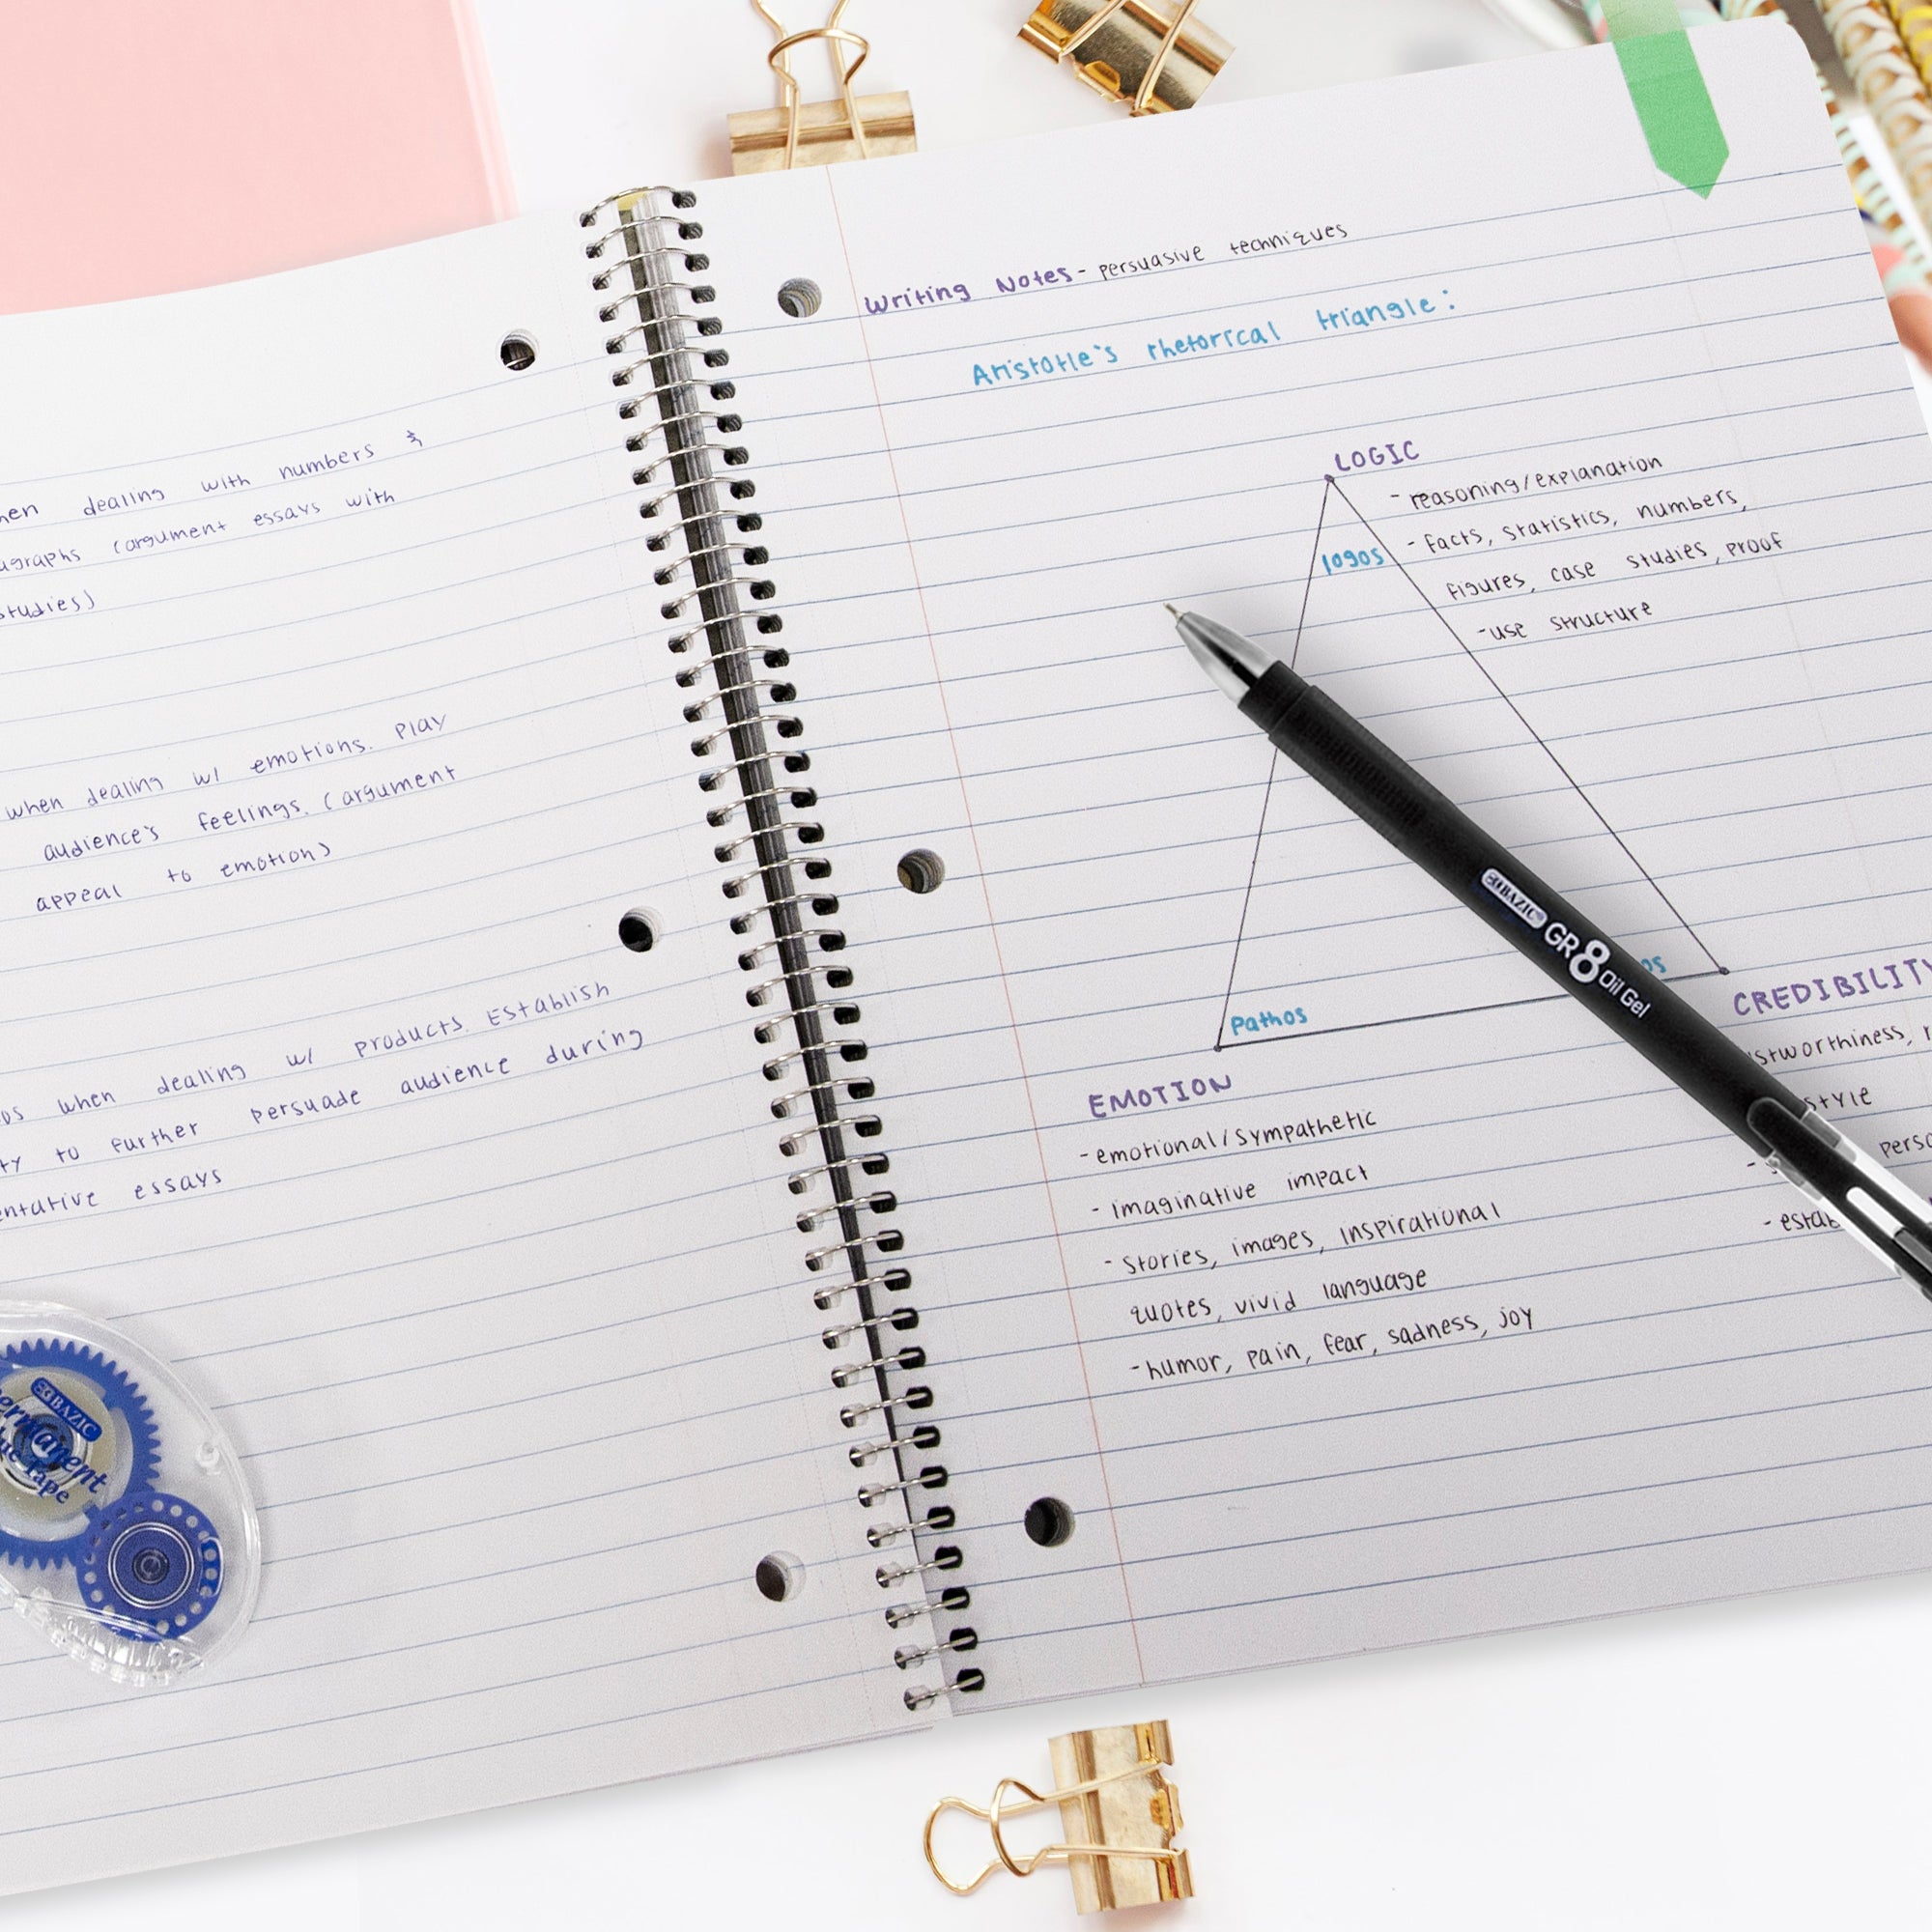 dealing with numbers &
(argument essays with
studies)
when dealing w/ emotions. Play
audience's feelings. (argument
appeal to emotion)
when dealing w/ products. Establish
to further persuade audience during
essays
Writing Notes - persuasive techniques
Aristotle's rhetorical triangle:
LOGIC
- reasoning/explanation
- facts, statistics, numbers,
figures, case studies, proof
- use structure
logos
Pathos
EMOTION
- emotional/sympathetic
- imaginative impact
- stories, images, inspirational
quotes, vivid language
- humor, pain, fear, sadness, joy
CREDIBILITY
style
BAZIC GR8 Oil Gel
BAZIC
Permanent
Tape